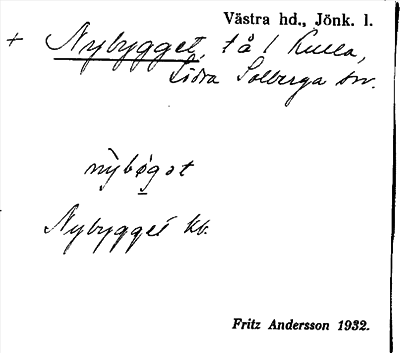 Västra hd., Jönk. l.
+ Nybygget, t å l Kulla,
Södra Solberga sn.
nybøgət
Nybygget kb.
Fritz Andersson 1932.